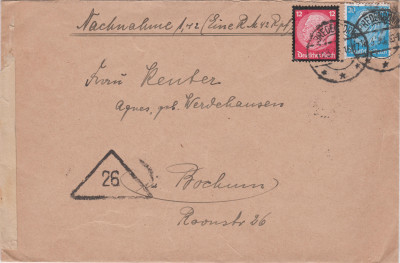 Nachnahme 1,42 (Eine R.M. 42 Rpf.)
12
Deutsches Reich
Frau Reuter
Agnes, geb. Werdehausen
26
Bochum
Roonstr 26